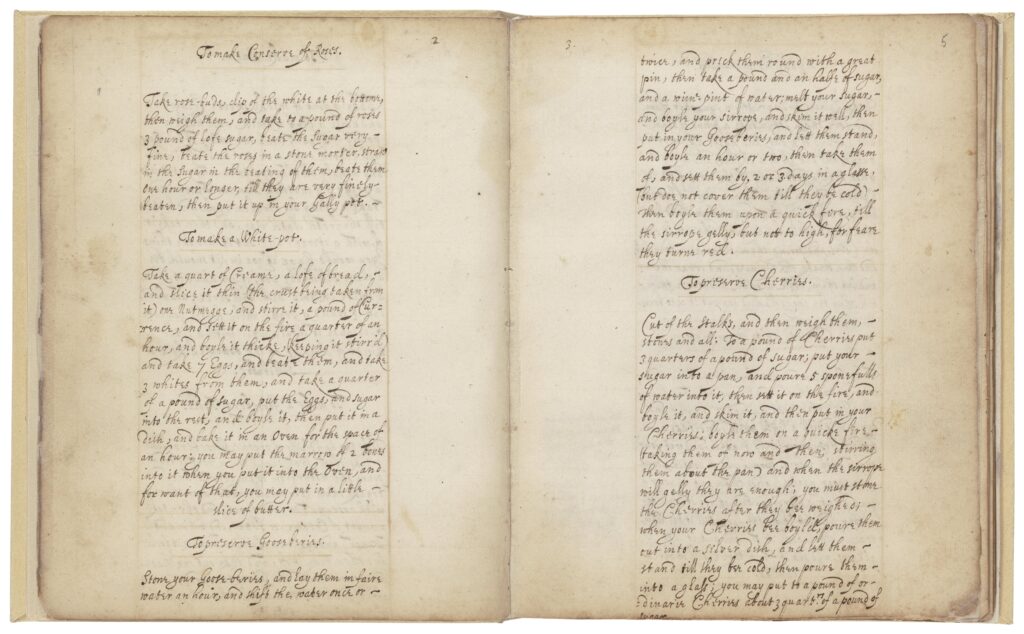 To make Conserve of Roses.
2
Take rose-buds, clip of the white at the bottome,
then weigh them, and take to a pound of roses
3 pound of lofe sugar, beate the sugar very
fine, beate the roses in a stone morter, straw
in the sugar in the beating of them, beate them
one hour or longer, till they are very finely
beaten, then put it up in your Gally pot.
To make a White-pot.
Take a quart of Creame, a lofe of bread,
and slice it thin (the crust being taken from
it) one Nutmegge, and stirre it, a pound of Cur-
rence, and sett it on the fire a quarter of an
hour, and boyle it thicke, keeping it stirr'd
and take 7 Eggs, and beate them, and take
3 whites from them, and take a quarter
of a pound of sugar, put the Eggs, and sugar
into the rest, and boyle it, then put it in a
dish, and bake it in an Oven for the space of
an hour; you may put the marrow of 2 bones
into it when you put it into the Oven, and
for want of that, you may put in a little
slice of butter.
To preserve Gooseberies.
Stone your Goose-beries, and lay them in faire
water an hour, and shift the water once or
3
5
twice, and prick them round with a great
pin, then take a pound and an halfe of sugar,
and a wine-pint of water; melt your sugar,
and boyle your sirrope, and skim it well, then
put in your Gooseberies, and lett them stand,
and boyle an hour or two, then take them
of, and sett them by, 2 or 3 days, in a glasse,
(but doe not cover them till they be cold)
then boyle them upon a quick fire, till
the sirrope gelly, but not to high, for feare
they turne red.
To preserve Cherries.
Cut of the Stalks, and then weigh them,
stones and all: To a pound of Cherries put
3 quarters of a pound of sugar; put your
sugar into a pan, and poure 5 sponefulls
of water into it, then sett it on the fire, and
boyle it, and skim it, and then put in your
Cherries; boyle them on a quicke fire
(taking them of now and then, stirring
them about the pan) and when the sirrope
will gelly they are enough; you must stone
the Cherries after they bee weighed:
when your Cherries bee boyl'd, poure them
out into a silver dish, and lett them
stand till they be cold, then poure them
into a glass; you may put to a pound of or-
dinarie Cherries about 3 quartrs of a pound of
sugar.